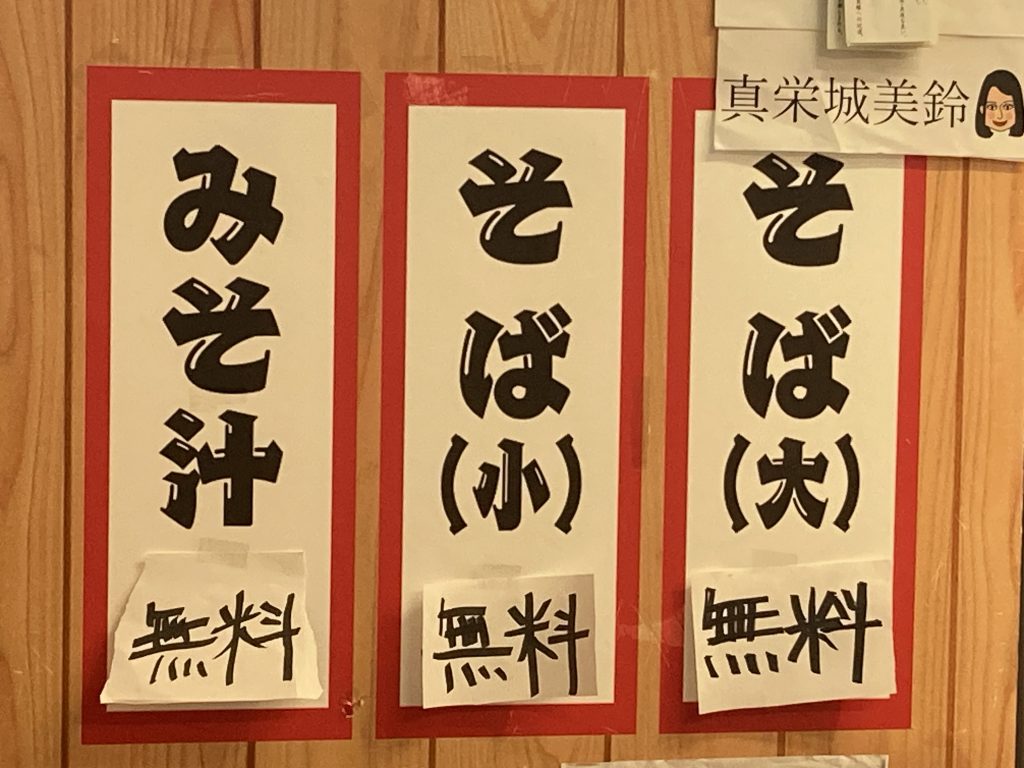 真栄城美鈴
そば(大)
無料
そば(小)
無料
みそ汁
無料